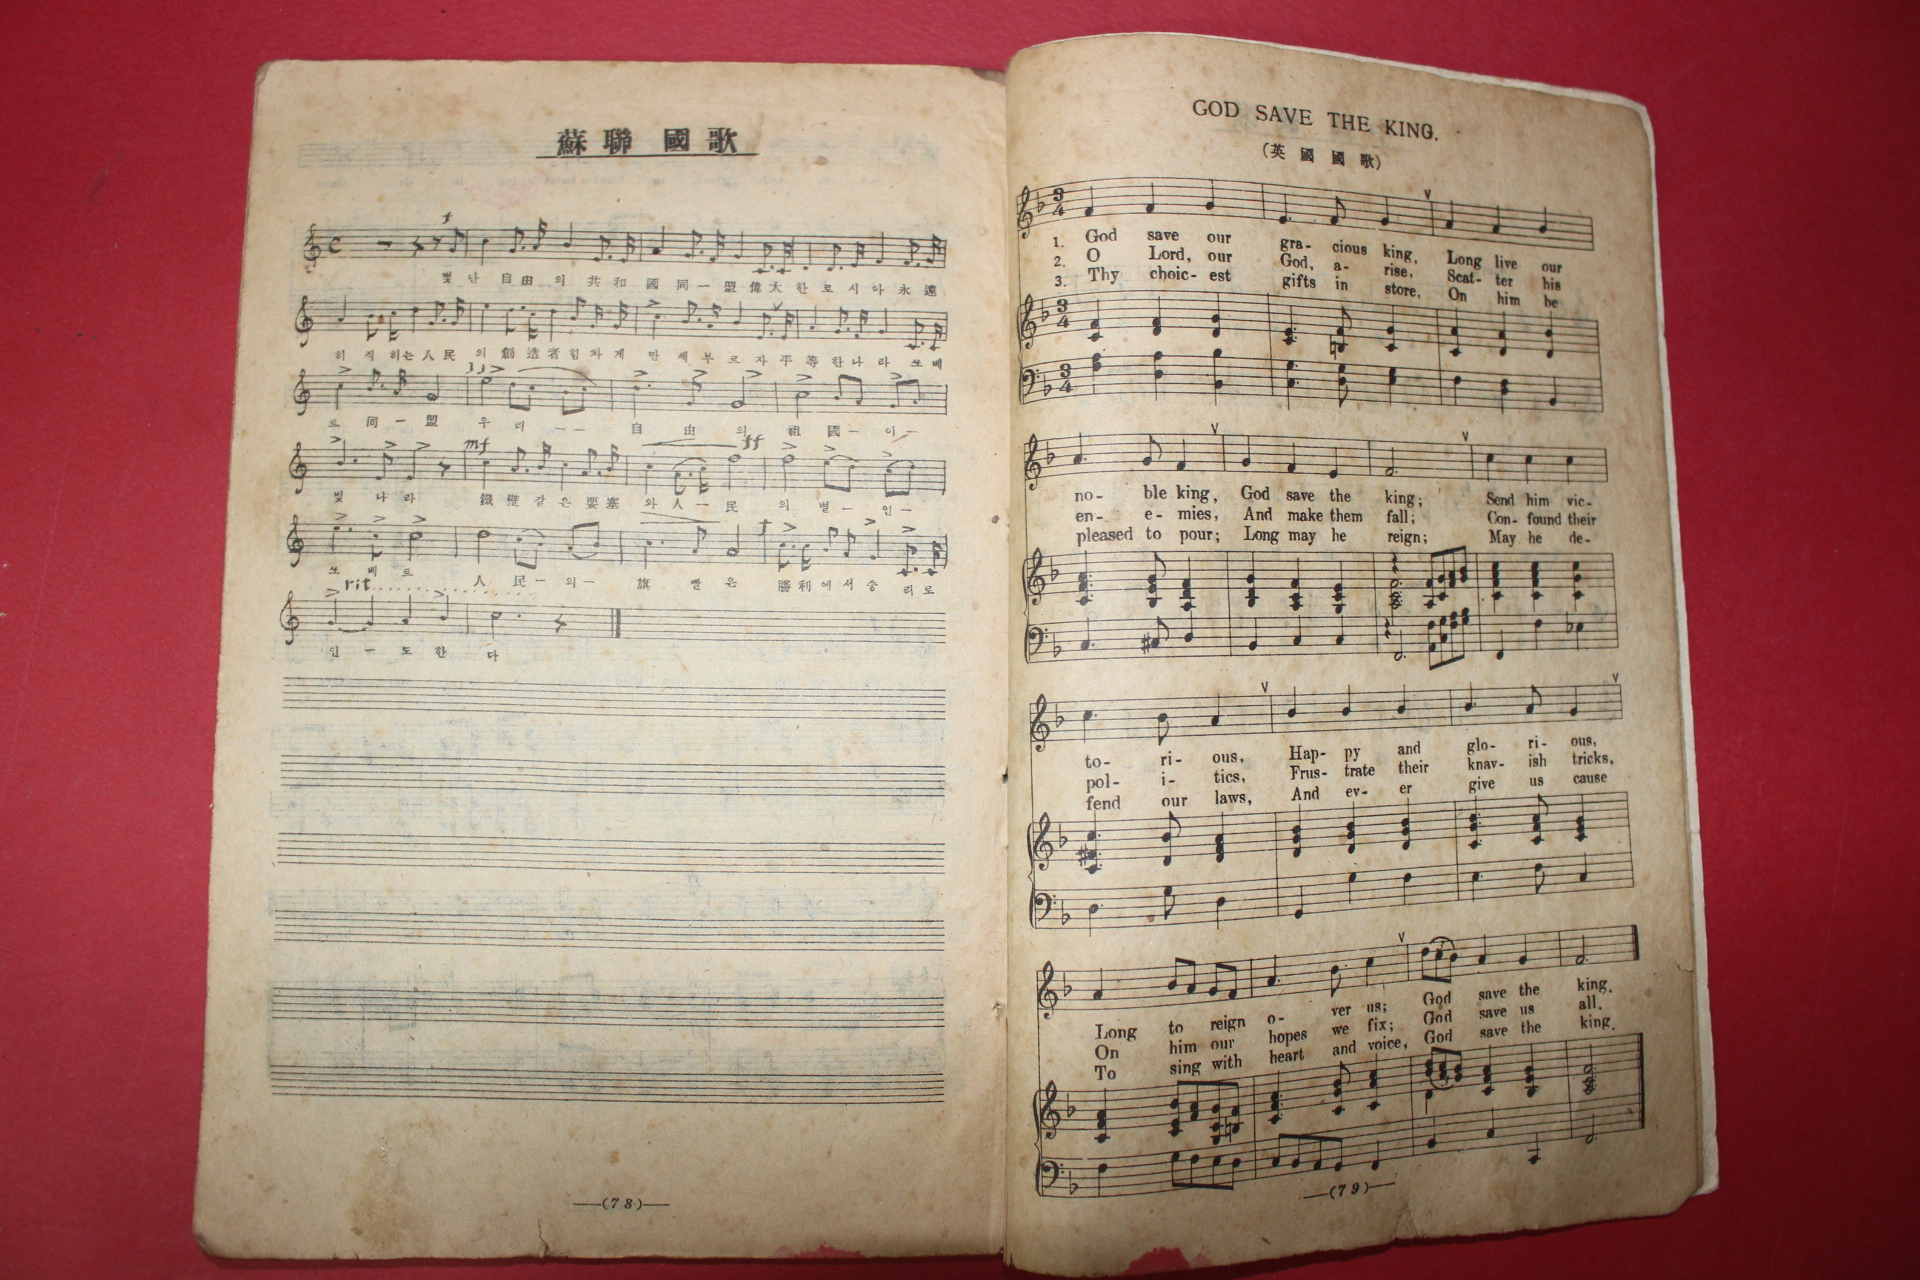 蘇聯 國歌
f
빛 나 自由 의 共 和 國 同 一 盟 偉大 한 로 시 아 永 遠
히 직 히는 人 民 의 創 造 者 힘 차 게 만 세 부 르 자 平 等 한 나 라 쏘 베
트 同 一 盟 우 리 — — 自 由 의 祖 國 — 이 —
mf ff
빛 나 라 鐵 壁 같 은 要 塞 와 人 — 民 의 별 — 인 —
f
쏘 베 트 人 民 — 의 — 旗 빨 은 勝 利 에 서 숭 리 로
rit.
인 — 도 한 다
—(78)—
GOD SAVE THE KING.
(英 國 國 歌)
1. God save our gra- cious king, Long live our
2. O Lord, our God, a- rise, Scat- ter his
3. Thy choic- est gifts in store, On him be
no- ble king, God save the king; Send him vic-
en- e- mies, And make them fall; Con- found their
pleased to pour; Long may he reign; May he de-
to- ri- ous, Hap- py and glo- ri- ous,
pol- i- tics, Frus- trate their knav- ish tricks,
fend our laws, And ev- er give us cause
Long to reign o- ver us; God save the king.
On him our hopes we fix; God save us all.
To sing with heart and voice, God save the king.
—(79)—